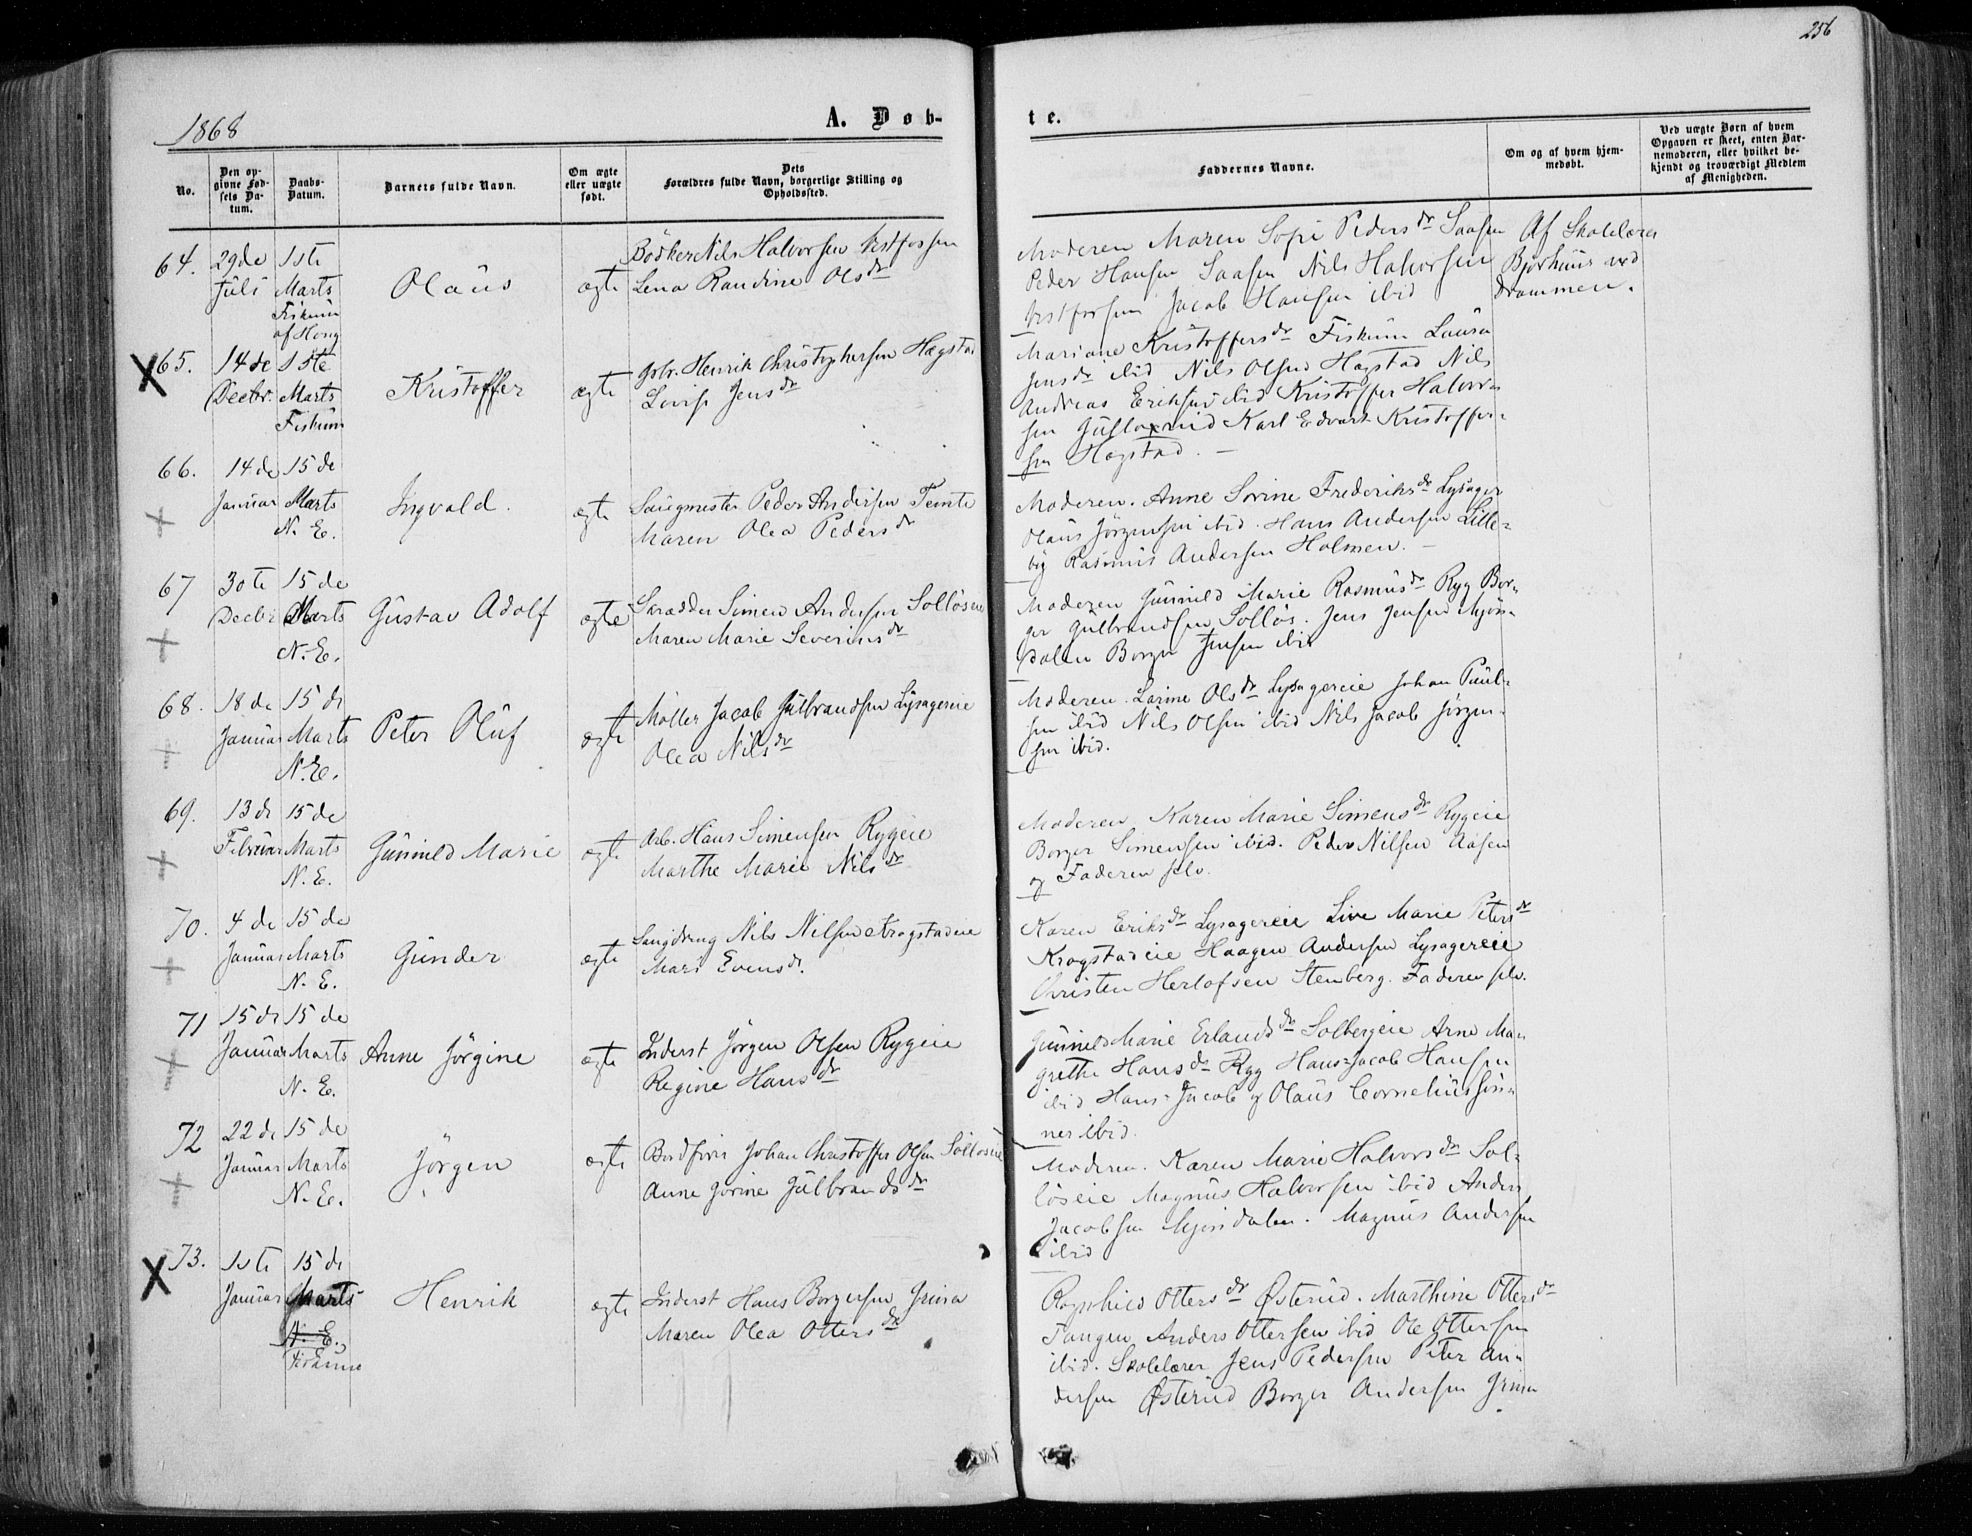 256
1868
A. Døb-
te.
No.
Den op-
givne Fød-
sels Da-
tum.
Daabs-
Datum.
Barnets fulde Navn.
Om ægte
eller uægte
født.
Dets
Forældres fulde Navn, borgerlige Stilling og
Opholdssted.
Faddernes Navne.
Om og af hvem hjem-
medøbt.
Ved uægte Børn af hvem
Opgaven er skeet, enten Bar-
nemoderen, eller hvilket be-
kjendt og troværdigt Medlem
af Menigheden.
64.
29de
Juli
1ste
Marts
Fiskum
af Houg
Olaus
ægte
Bödker Nils Halvorsen Vestfossen
Lena Randine Olsdr
Moderen Maren Sofie Pedersdr Saasen
Peder Hansen Saasen Nils Halvorsen
Vestfossen Jacob Hansen ibid
Af Skolelærer
Bjorhuus ved
Drammen.
X 65.
14de
Decbr.
15te
Marts
Fiskum
Kristoffer
ægte
Gbr. Henrik Christophersen Hægstad
Lovise Jensdr
Mariane Kristoffersdr Fiskum Laura
Jensdr ibid Nils Olsen Hagstad Nils
Andreas Eriksen ibid Kristoffer Halvor-
sen Gusloxrud Karl Edvart Kristoffer-
sen Hagstad. —
66.
14de
Januar
15de
Marts
N. E.
Ingvald.
ægte
Saugmester Peder Andersen Temte
Maren Olea Pedersdr
Moderen. Anne Sorine Frederiksdr Lysager
Olaus Jörgensen ibid. Hans Andersen Lille-
by Rasmus Andersen Holmen. —
67
30te
Decbr
15de
Marts
N. E.
Gustav Adolf
ægte
Skrædder Simen Andersen Sollösen
Maren Marie Severinsdr
Moderen Gunnild Marie Rasmusdr Ryg Bor-
ger Gulbrandsen Sollös. Jens Jensen Mjön-
dalen Borger Jensen ibid
68.
18de
Januar
15de
Marts
N. E.
Peter Oluf
ægte
Möller Jacob Gulbrandsen Lysagereie
Olea Nilsdr
Moderen. Larine Olsdr Lysagereie Johan Paul-
sen ibid Nils Olsen ibid Nils Jacob Jörgen-
sen ibid.
69.
13de
Februar
15de
Marts
N. E.
Gunnild Marie
ægte
Arb. Hans Simensen Rygeie
Marthe Marie Nilsdr
Moderen, Karen Marie Simensdr Rygeie
Borger Simensen ibid. Peder Nilsen Aasen
og Faderen selv.
70.
4de
Januar
15de
Marts
N. E.
Gunder
ægte
Saugdreng Nils Nilsen Krogstadeie
Mari Evensdr.
Karen Eriksdr Lysagereie Live Marie Petersdr
Krogstadeie Haagen Andersen Lysagereie
Christen Herlofsen Stenberg. Faderen selv.
71
15de
Januar
15de
Marts
N. E.
Anne Jörgine
ægte
Inderst Jörgen Olsen Rygeie
Regine Hansdr
Gunnild Marie Erlandsdr Solbergeie Anne Ma-
grethe Hansdr Ryg Hans Jacob Hansen
ibid Hans Jacob og Olaus Cornelius Sön-
ner ibid.
72
22de
Januar
15de
Marts
N. E.
Jörgen
ægte
Bordfører Johan Christoffer Olsen Sollöseie
Anne Jörine Gulbrandsdr
Moderen. Karen Marie Halvorsdr Sol-
löseie Magnus Halvorsen ibid Anders
Jacobsen Mjöndalen. Magnus Andersen
ibid
X 73.
1ste
Januar
15de
Marts
N. E.
Fiskum
Henrik
ægte
Inderst Hans Borgersen Grina
Maren Olea Ottersdr
Ragnhild Ottersdr Østerud. Marthine Ottersdr
Tangen, Anders Ottersen ibid Ole Ottersen
ibid. Skolelærer Jens Pedersen Peter An-
dersen Østerud Borger Andersen Grina